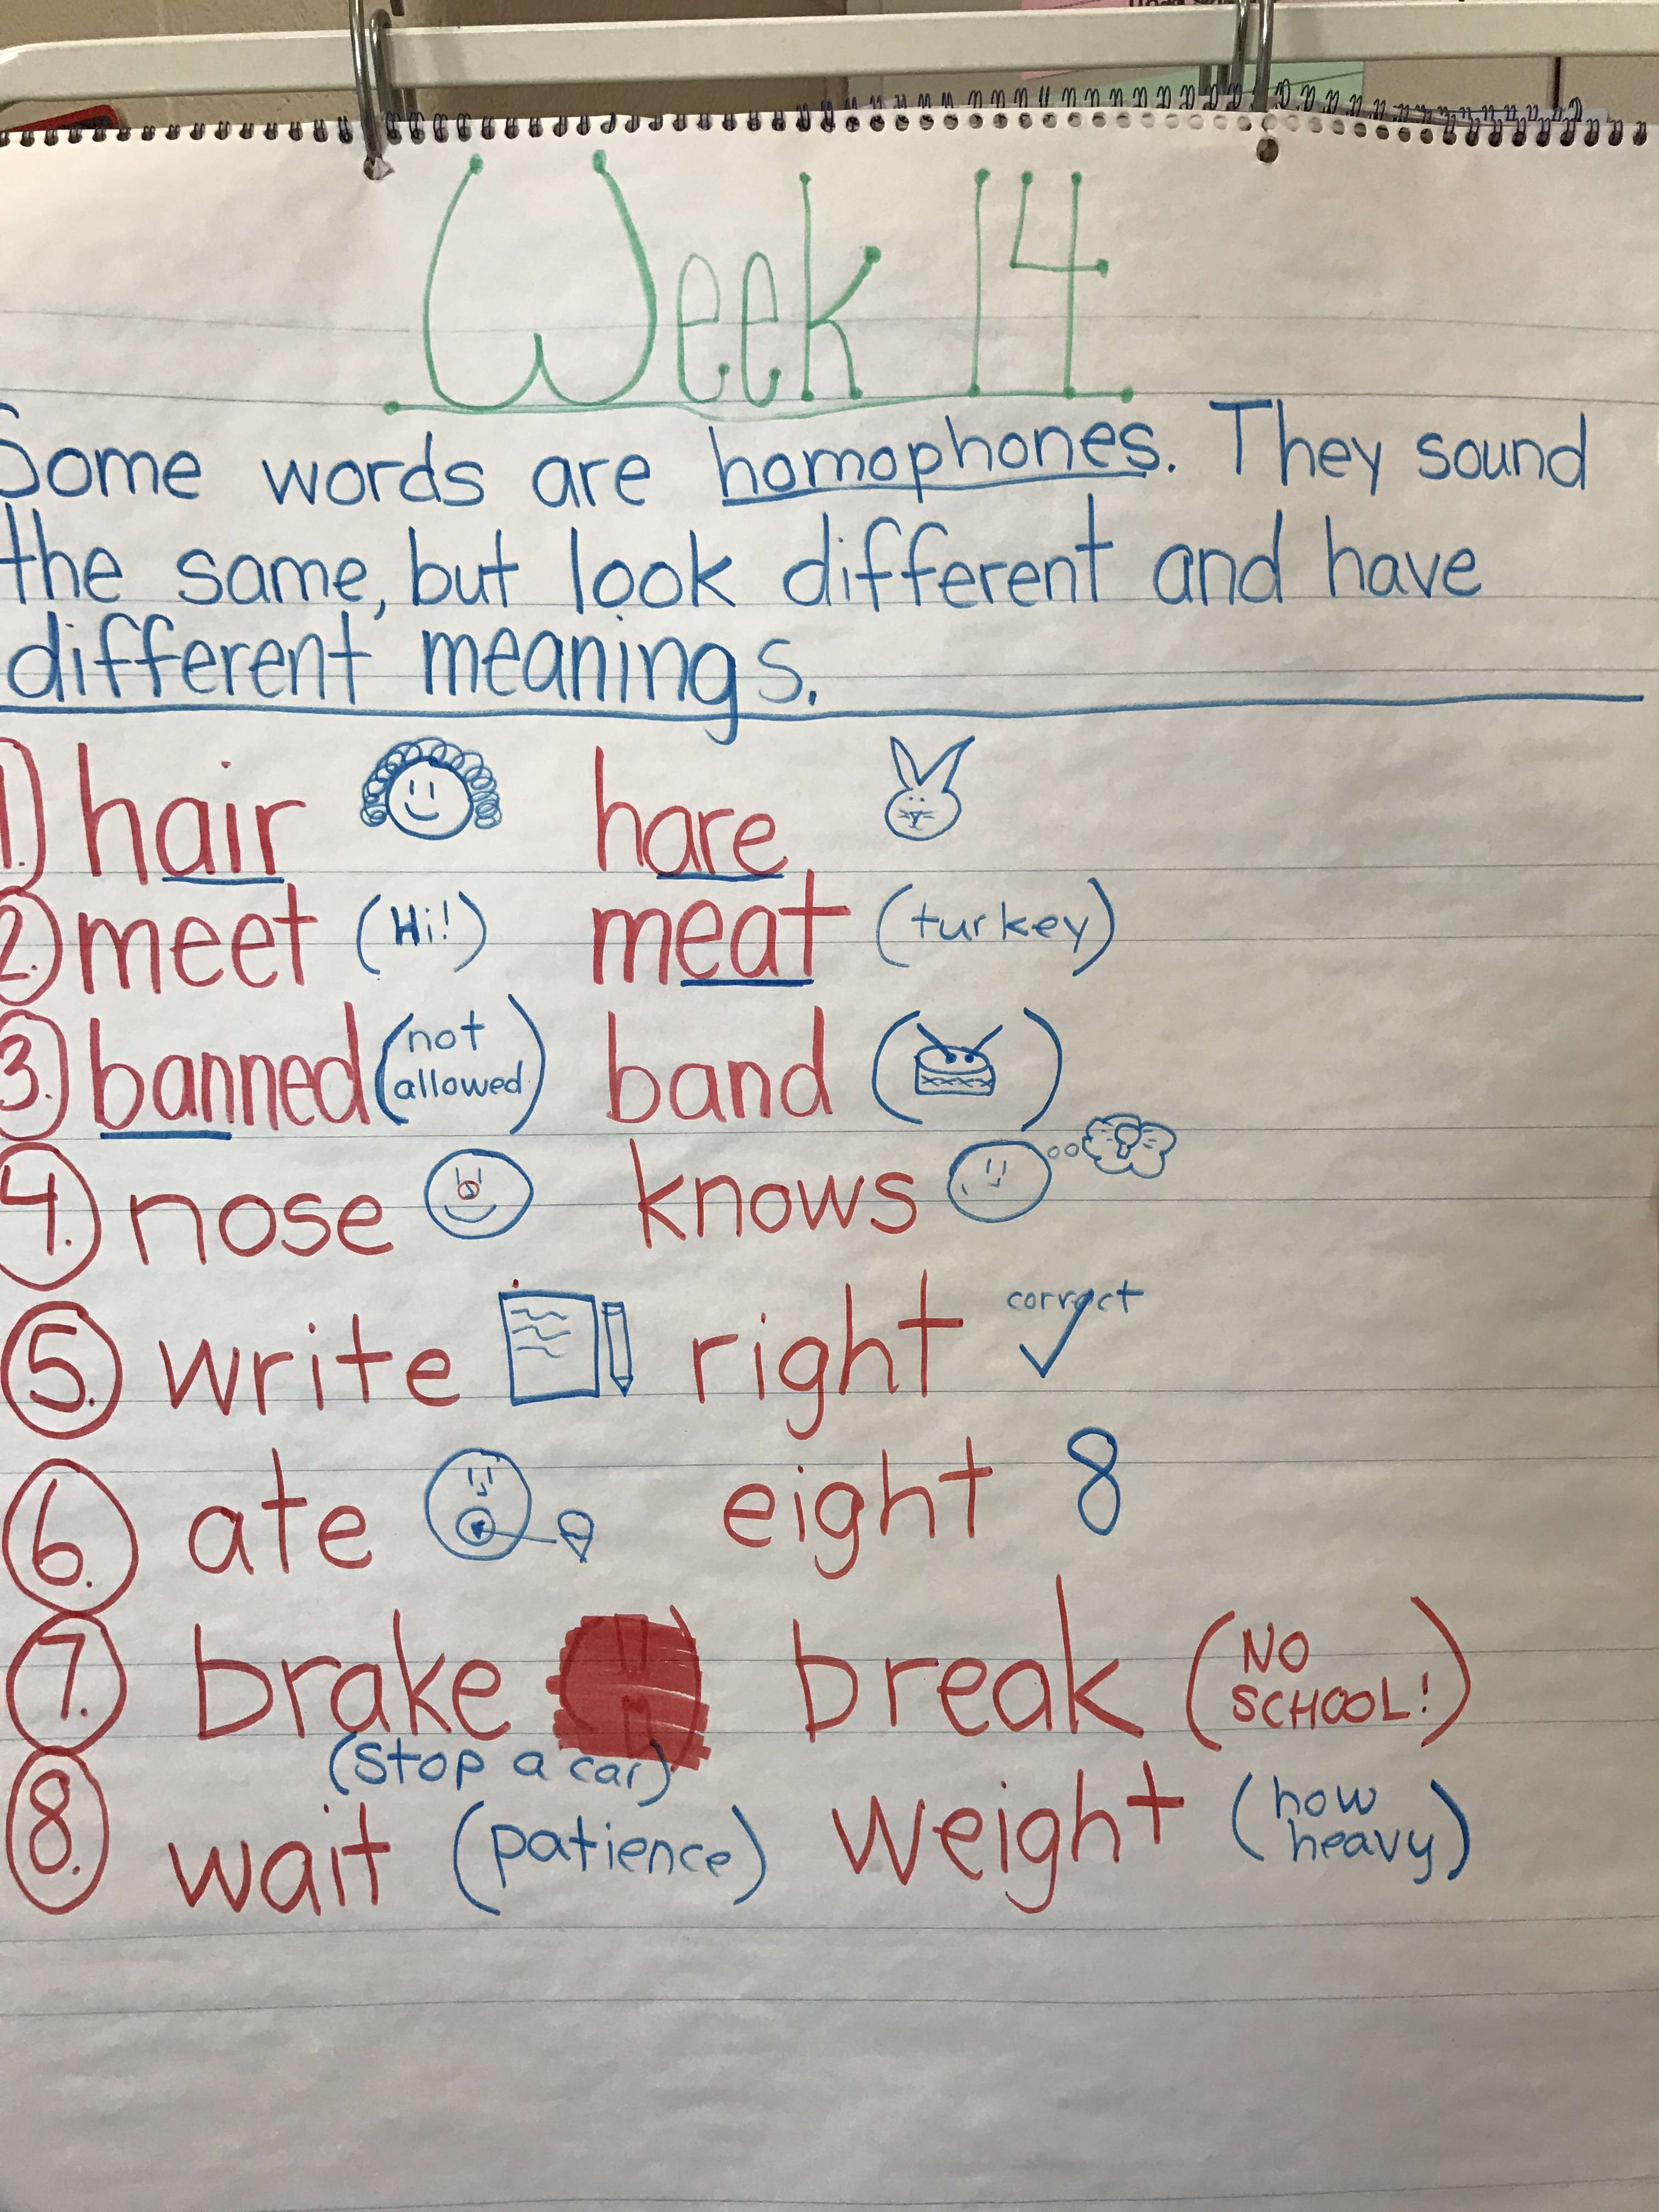 Week 14
Some words are homophones. They sound
the same, but look different and have
different meanings.
1. hair hare
2. meet (Hi!) meat (turkey)
3. banned (not allowed) band
4. nose knows
5. write right correct
6. ate eight 8
7. brake break (NO SCHOOL!)
(stop a car)
8. wait (patience) weight (how heavy)